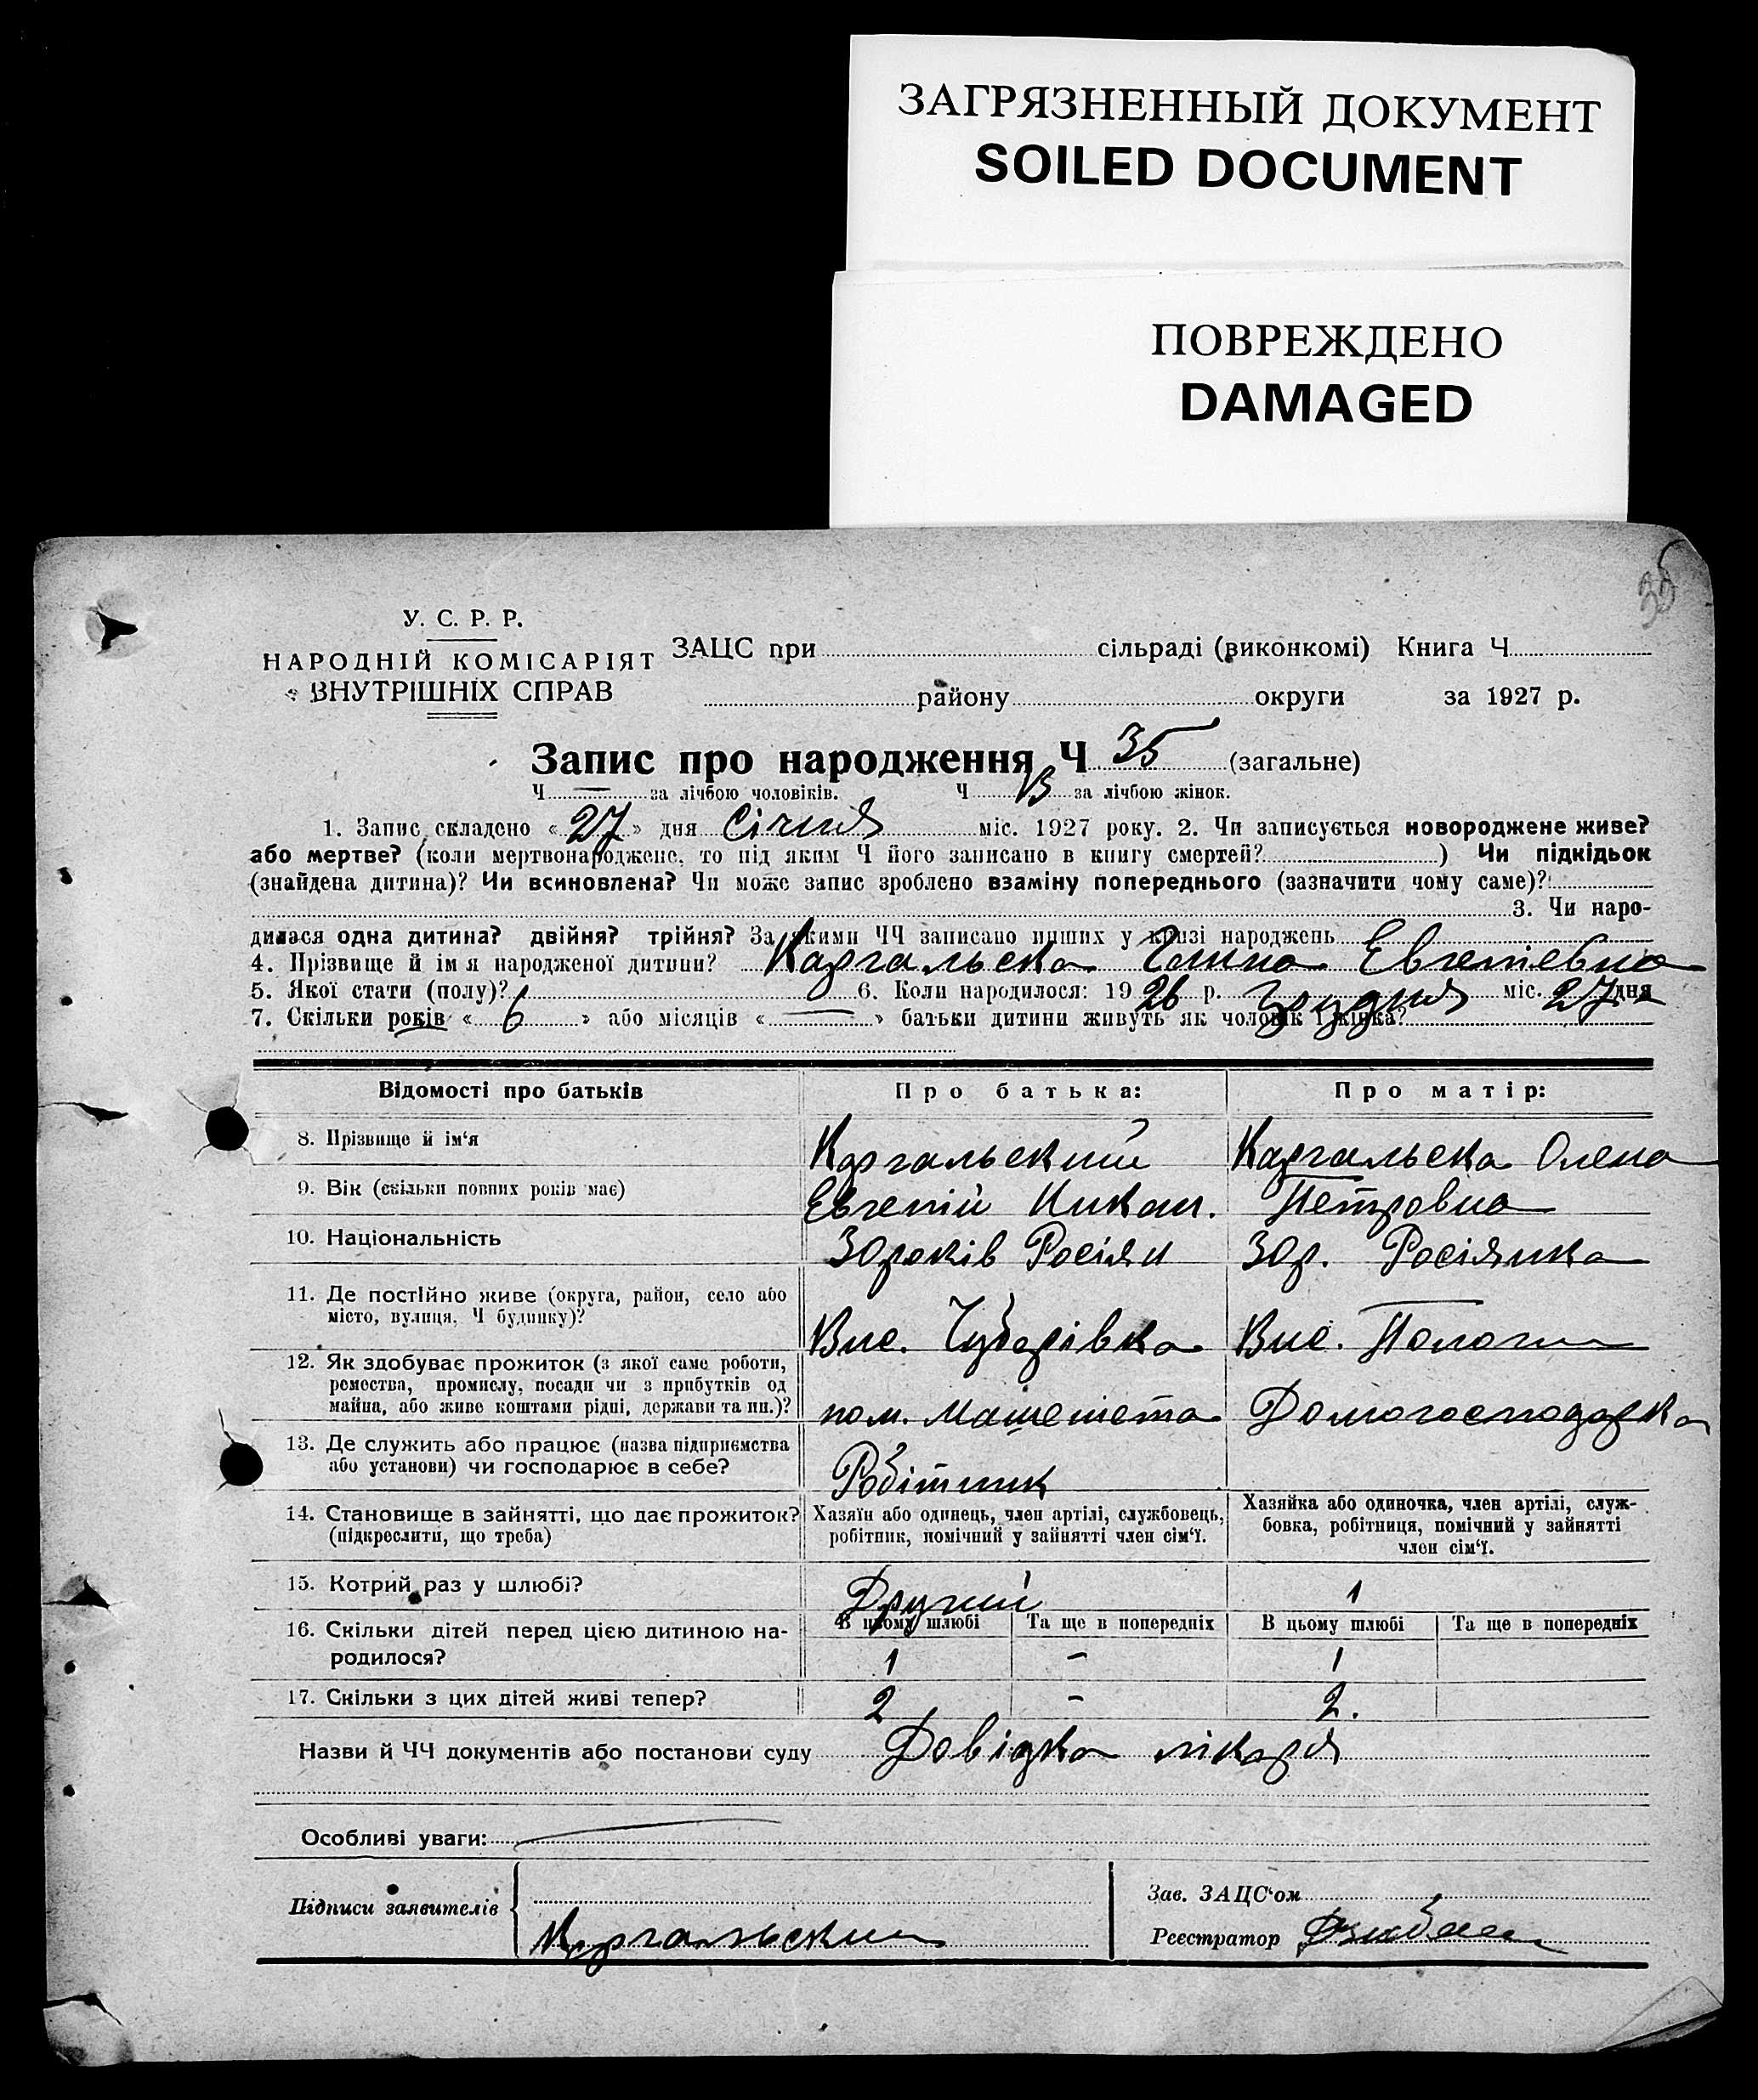 ЗАГРЯЗНЕННЫЙ ДОКУМЕНТ
SOILED DOCUMENT
ПОВРЕЖДЕНО
DAMAGED
35
У. С. Р. Р.
НАРОДНІЙ КОМІСАРІЯТ
ВНУТРІШНІХ СПРАВ
ЗАЦС при сільраді (виконкомі) Книга Ч
району округи за 1927 р.
Запис про народження Ч 35 (загальне)
Ч — за лічбою чоловіків. Ч за лічбою жінок.
1. Запис складено «27» дня Січня міс. 1927 року. 2. Чи записується новороджене живе?
або мертве? (коли мертвонароджене, то під яким Ч його записано в книгу смертей? ) Чи підкідьок
(знайдена дитина)? Чи всиновлена? Чи може запис зроблено взаміну попереднього (зазначити чому саме)?
3. Чи наро-
дилася одна дитина? двійня? трійня? За якими ЧЧ записано инших у книзі народжень
4. Прізвище й ім я народженої дитини? Каргальска Євгеніевна
5. Якої стати (полу)? 6. Коли народилося: 1926 р. Грудня міс. 27 дня
7. Скільки років «6» або місяців «—» батьки дитини живуть як чоловік і жінка?
Відомості про батьків Про батька: Про матір:
8. Прізвище й ім‘я Каргальский Каргальска Олена
9. Вік (скільки повних років має) Евгений Никан. Петровна
10. Національність 30 років Росіян 30 р. Росіянка
11. Де постійно живе (округа, район, село або
місто, вулиця, Ч будинку)? Вис. Чубарівка Вис. Пологи
12. Як здобуває прожиток (з якої саме роботи,
ремества, промислу, посади чи з прибутків од
майна, або живе коштами рідні, держави та ин.)? пом. Машеніста Домогосподарка
13. Де служить або працює (назва підприємства
або установи) чи господарює в себе? Робітник
14. Становище в зайнятті, що дає прожиток? Хазяїн або одинець, член артілі, службовець, Хазяйка або одиночка, член артілі, служ-
(підкреслити, що треба) робітник, помічний у зайнятті член сім‘ї. бовка, робітниця, помічний у зайнятті
член сім‘ї.
15. Котрий раз у шлюбі? Другий 1
В цьому шлюбі Та ще в попередніх В цьому шлюбі Та ще в попередніх
16. Скільки дітей перед цією дитиною на-
родилося? 1 – 1
17. Скільки з цих дітей живі тепер? 2 – 2.
Назви й ЧЧ документів або постанови суду Довідка лікаря
Особливі уваги:
Підписи заявителів Каргальский
Зав. ЗАЦС‘ом
Реєстратор